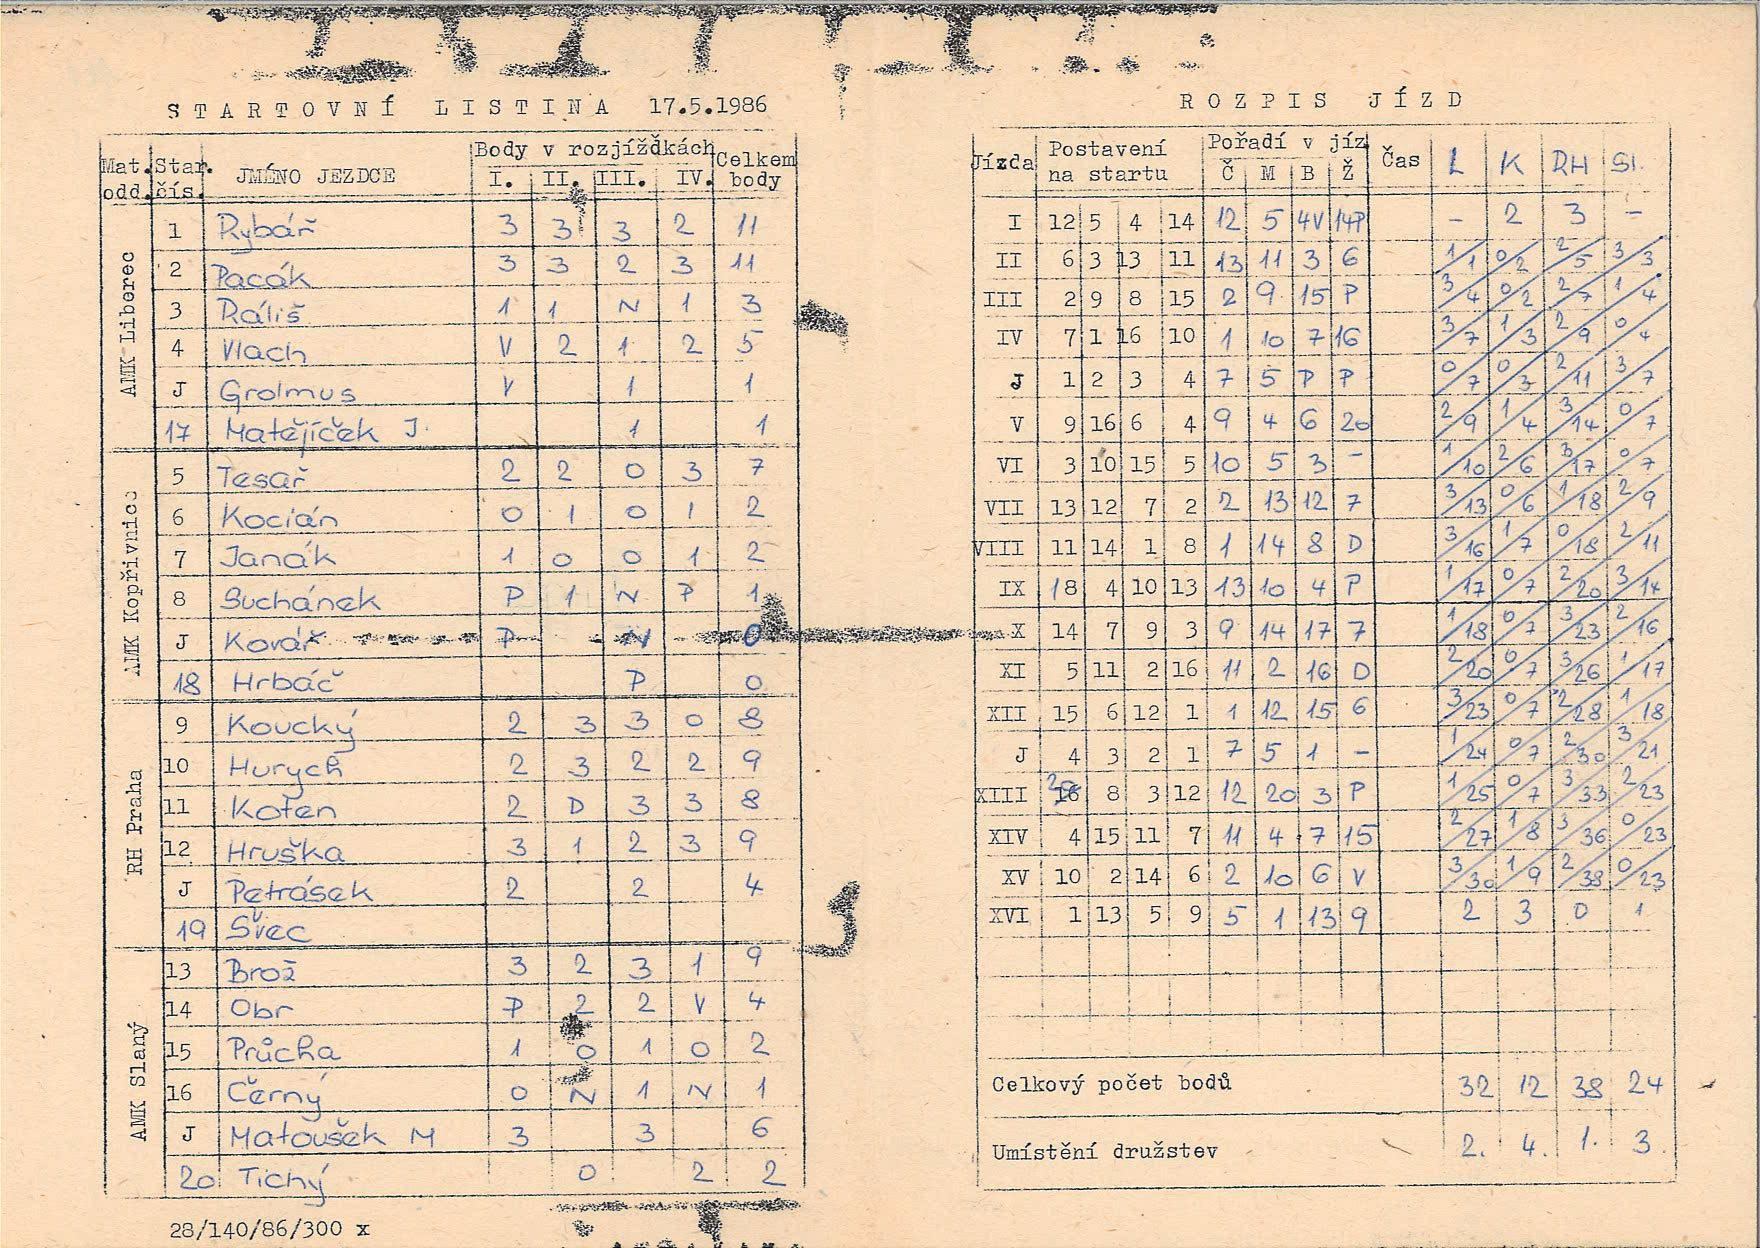 STARTOVNÍ LISTINA 17.5.1986
Mat. odd. Star. čís. JMÉNO JEZDCE Body v rozjížďkách I. II. III. IV. Celkem body
AMK Liberec
1 Rybář 3 3 3 2 11
2 Pacák 3 3 2 3 11
3 Ráliš 1 1 N 1 3
4 Vlach V 2 1 2 5
J Grolmus V 1 1
17 Matějíček J. 1 1
AMK Kopřivnice
5 Tesař 2 2 0 3 7
6 Kocián 0 1 0 1 2
7 Janák 1 0 0 1 2
8 Suchánek P 1 N P 1
J Kovář P N 0
18 Hrbáč P 0
RH Praha
9 Koucký 2 3 3 0 8
10 Hurych 2 3 2 2 9
11 Kořen 2 D 3 3 8
12 Hruška 3 1 2 3 9
J Petrásek 2 2 4
19 Švec
AMK Slaný
13 Brož 3 2 3 1 9
14 Obr P 2 2 V 4
15 Průcha 1 0 1 0 2
16 Černý 0 N 1 N 1
J Matoušek M 3 3 6
20 Tichý 0 2 2
28/140/86/300 x
ROZPIS JÍZD
Jízda Postavení na startu Pořadí v jíz Č M B Ž Čas L K RH Sl.
I 12 5 4 14 12 5 4V 14P - 2 3 -
II 6 3 13 11 13 11 3 6 1/1 0/2 2/5 3/3
III 2 9 8 15 2 9 15 P 3/4 0/2 2/7 1/4
IV 7 1 16 10 1 10 7 16 3/7 1/3 2/9 0/4
J 1 2 3 4 7 5 P P 0/7 0/3 2/11 3/7
V 9 16 6 4 9 4 6 20 2/9 1/4 3/14 0/7
VI 3 10 15 5 10 5 3 - 1/10 2/6 3/17 0/7
VII 13 12 7 2 2 13 12 7 3/13 0/6 1/18 2/9
VIII 11 14 1 8 1 14 8 D 3/16 1/7 0/18 2/11
IX 18 4 10 13 13 10 4 P 1/17 0/7 2/20 3/14
X 14 7 9 3 9 14 17 7 1/18 0/7 3/23 2/16
XI 5 11 2 16 11 2 16 D 2/20 0/7 3/26 1/17
XII 15 6 12 1 1 12 15 6 3/23 0/7 2/28 1/18
J 4 3 2 1 7 5 1 - 1/24 0/7 2/30 3/21
XIII 20 8 3 12 12 20 3 P 1/25 0/7 3/33 2/23
XIV 4 15 11 7 11 4 7 15 2/27 1/8 3/36 0/23
XV 10 2 14 6 2 10 6 V 3/30 1/9 2/38 0/23
XVI 1 13 5 9 5 1 13 9 2 3 0 1
Celkový počet bodů 32 12 38 24
Umístění družstev 2. 4. 1. 3.